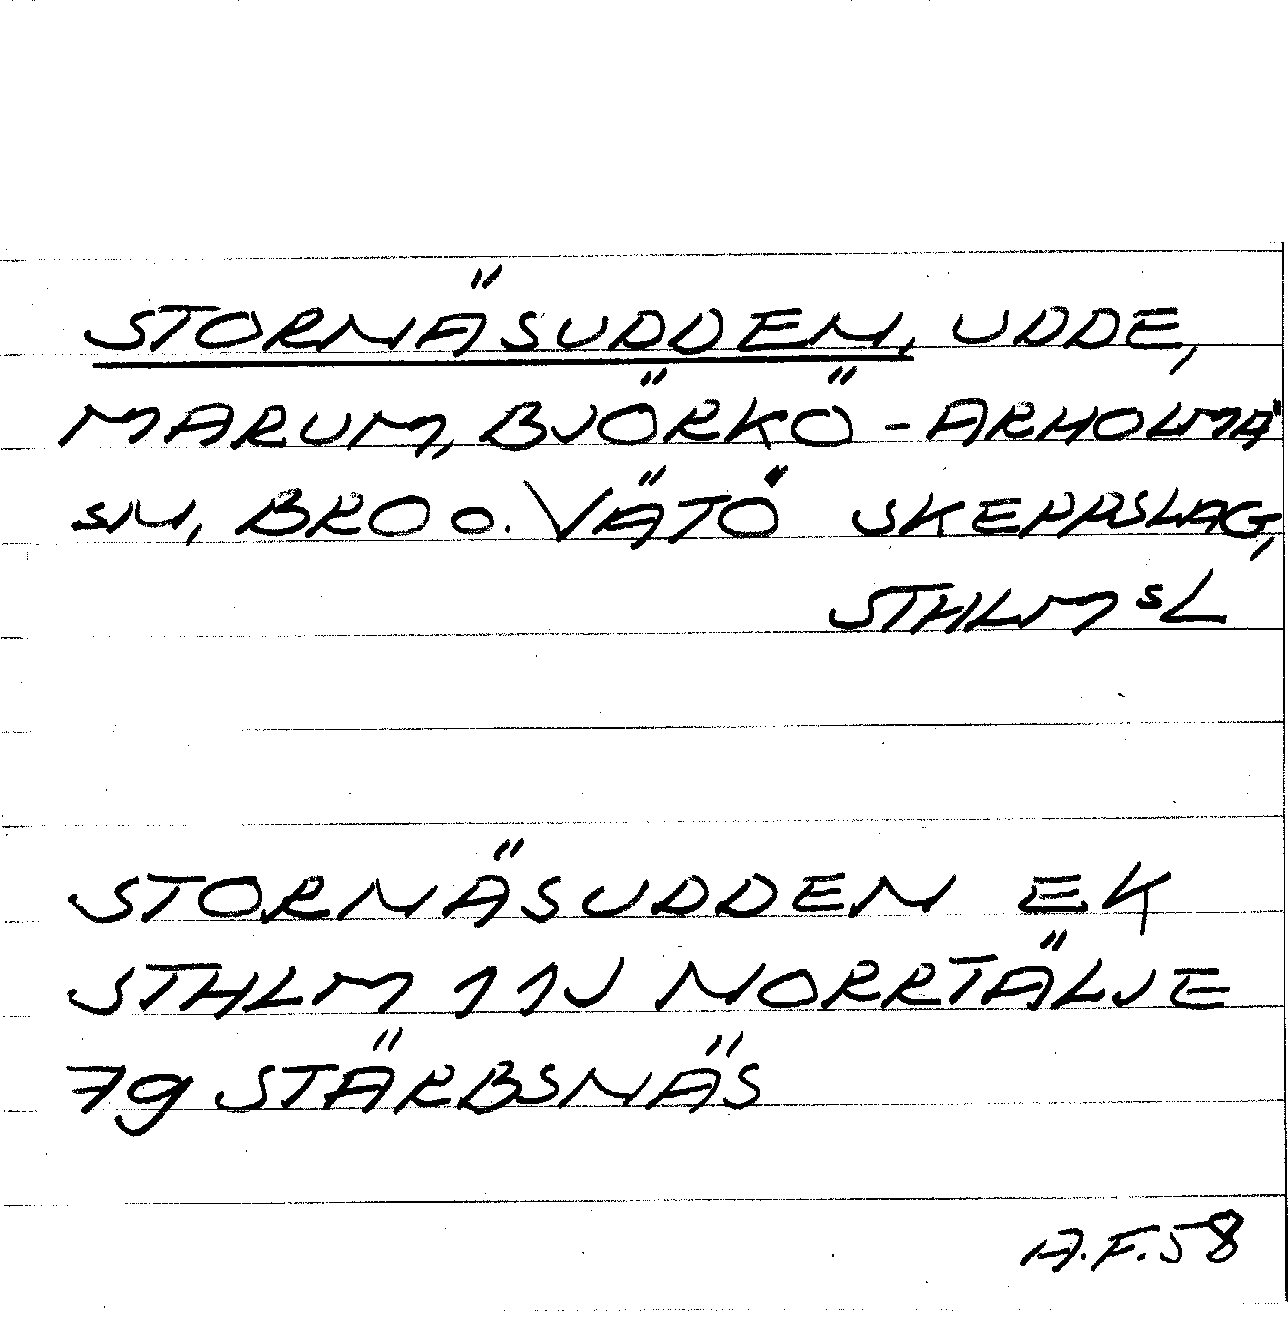 STORNÄSUDDEN, UDDE,
MARUM, BJÖRKÖ - ARHOLMA
SN, BRO O. VÄTÖ SKEPPSLAG,
STHLMSL
STORNÄSUDDEN EK
STHLM 11J NORRTÄLJE
7g STÄRBSNÄS
A.F. 58